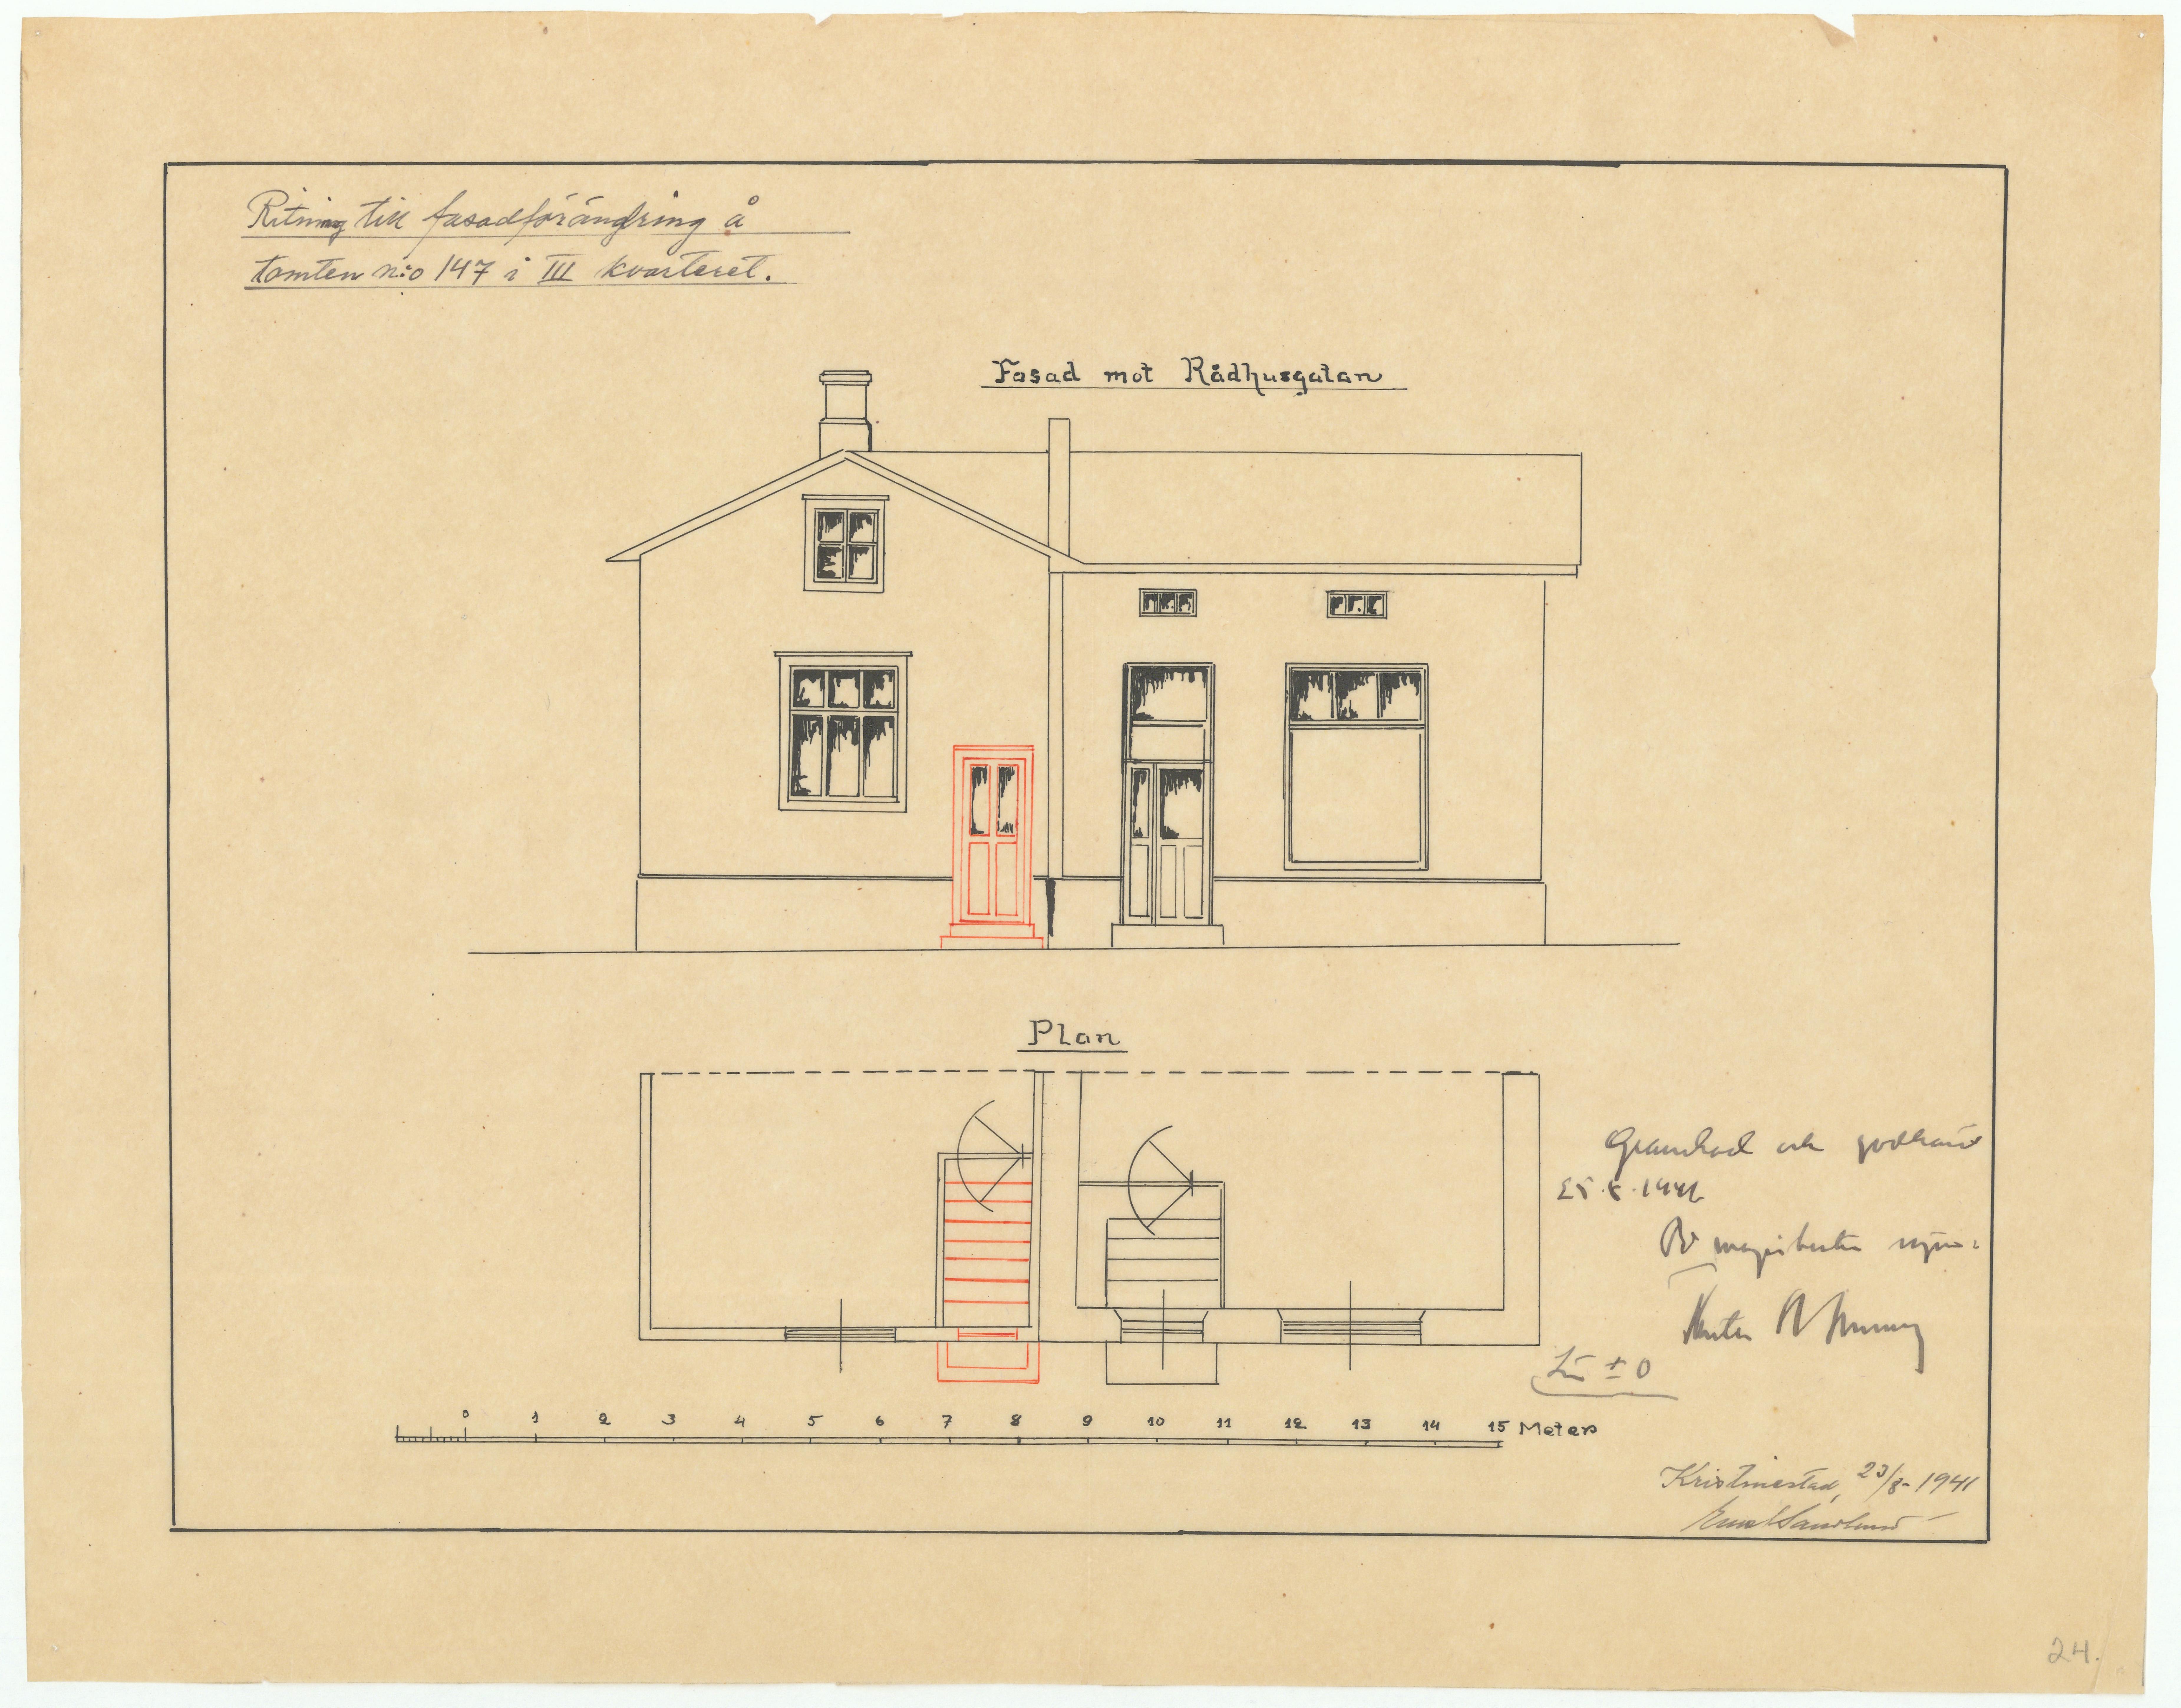 Ritning till fasadförändring å
tomten n:o 147 i III kvarteret.
Fasad mot Rådhusgatan
Plan
Granskad och godkänd
På magistratens vägnar:
± 0
0 1 2 3 4 5 6 7 8 9 10 11 12 13 14 15 Meter
Kristinestad, 23/8-1941
Emil Sandlund
24.